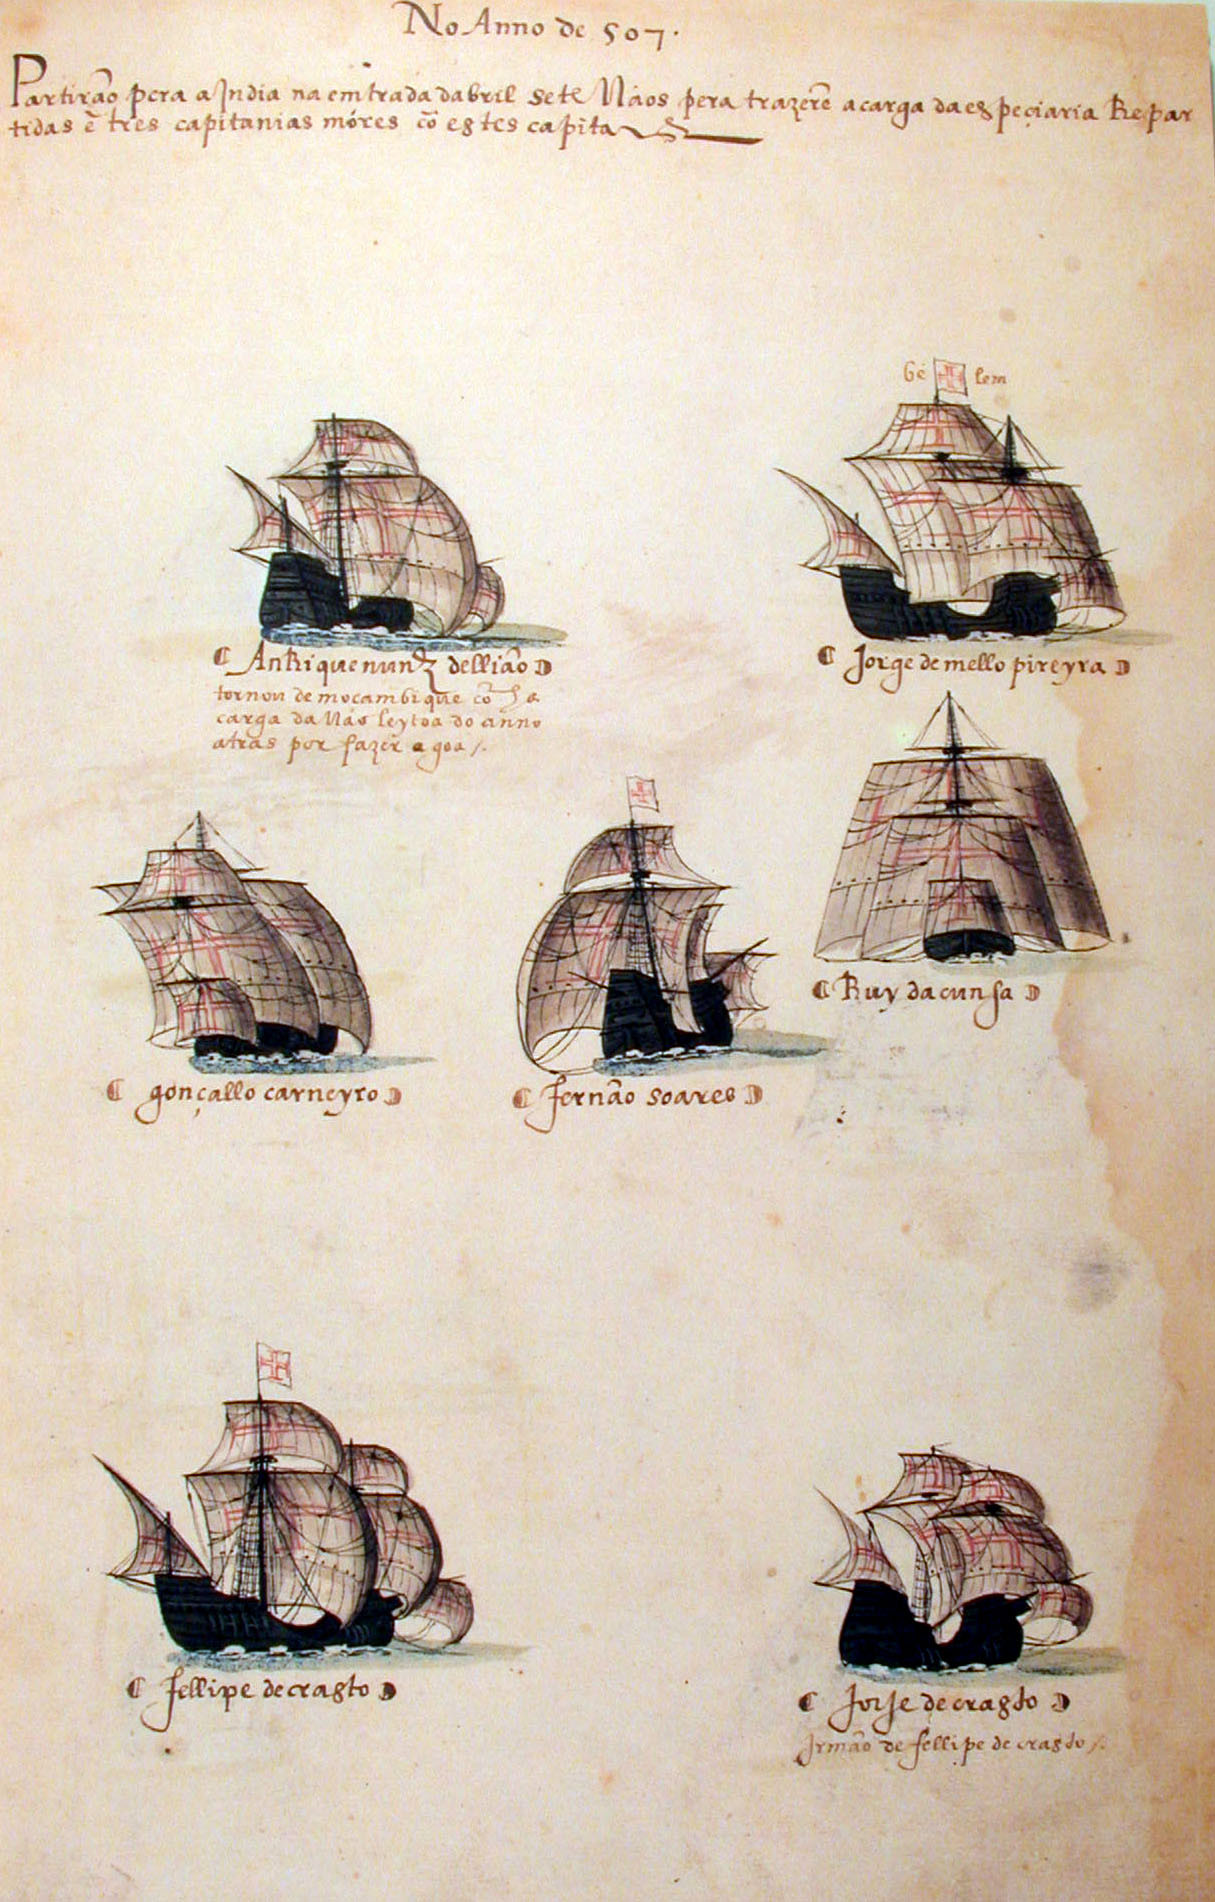 No Anno de 507.
Partirão pera a India na emtrada dabril sete Náos pera trazerẽ a carga da espeçiaria Repar
tidas ẽ tres capitanias móres cõ estes capitaẽs
Bé lem
Anrrique nunz delliáo
Jorge de mello pireyra
tornou de moçambique cõ
carga da Náo leytoa do anno
atras por fazer agoa /.
Ruy da cunha
gonçallo carneyro
fernão soares
fellipe de crasto
Jorje de crasto
Irmão de fellipe de crasto /.